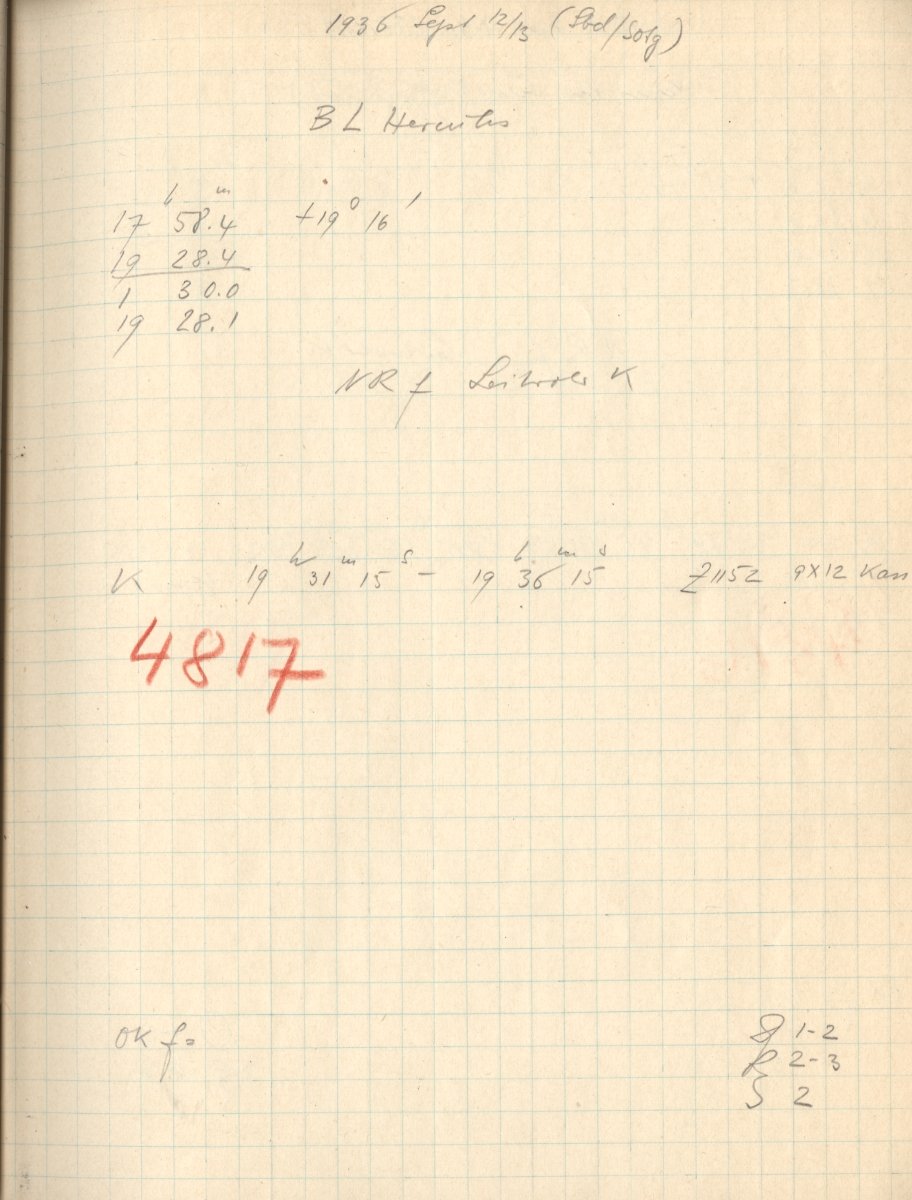 1936 Sept 12/13 (Sbd/Sotg)
BL Herculis
17 h 58.4 m +19° 16'
19 28.4
1 30.0
19 28.1
NR f K
K 19 h 31 m 15 s – 19 h 36 m 15 s Z1152 9x12 Kass
4817
OK f=
1-2
R 2-3
S 2